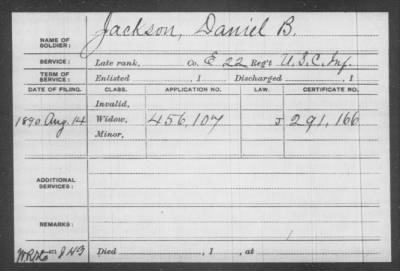 NAME OF SOLDIER: Jackson, Daniel B.
SERVICE: Late rank, Co. E 22 Reg't U.S.C. Inf.
TERM OF SERVICE: Enlisted , 1 Discharged , 1
DATE OF FILING. CLASS. APPLICATION NO. LAW. CERTIFICATE NO.
Invalid,
1890 Aug. 14 Widow, 456,107 J 291,166
Minor,
ADDITIONAL SERVICES:
REMARKS:
Died , 1 , at